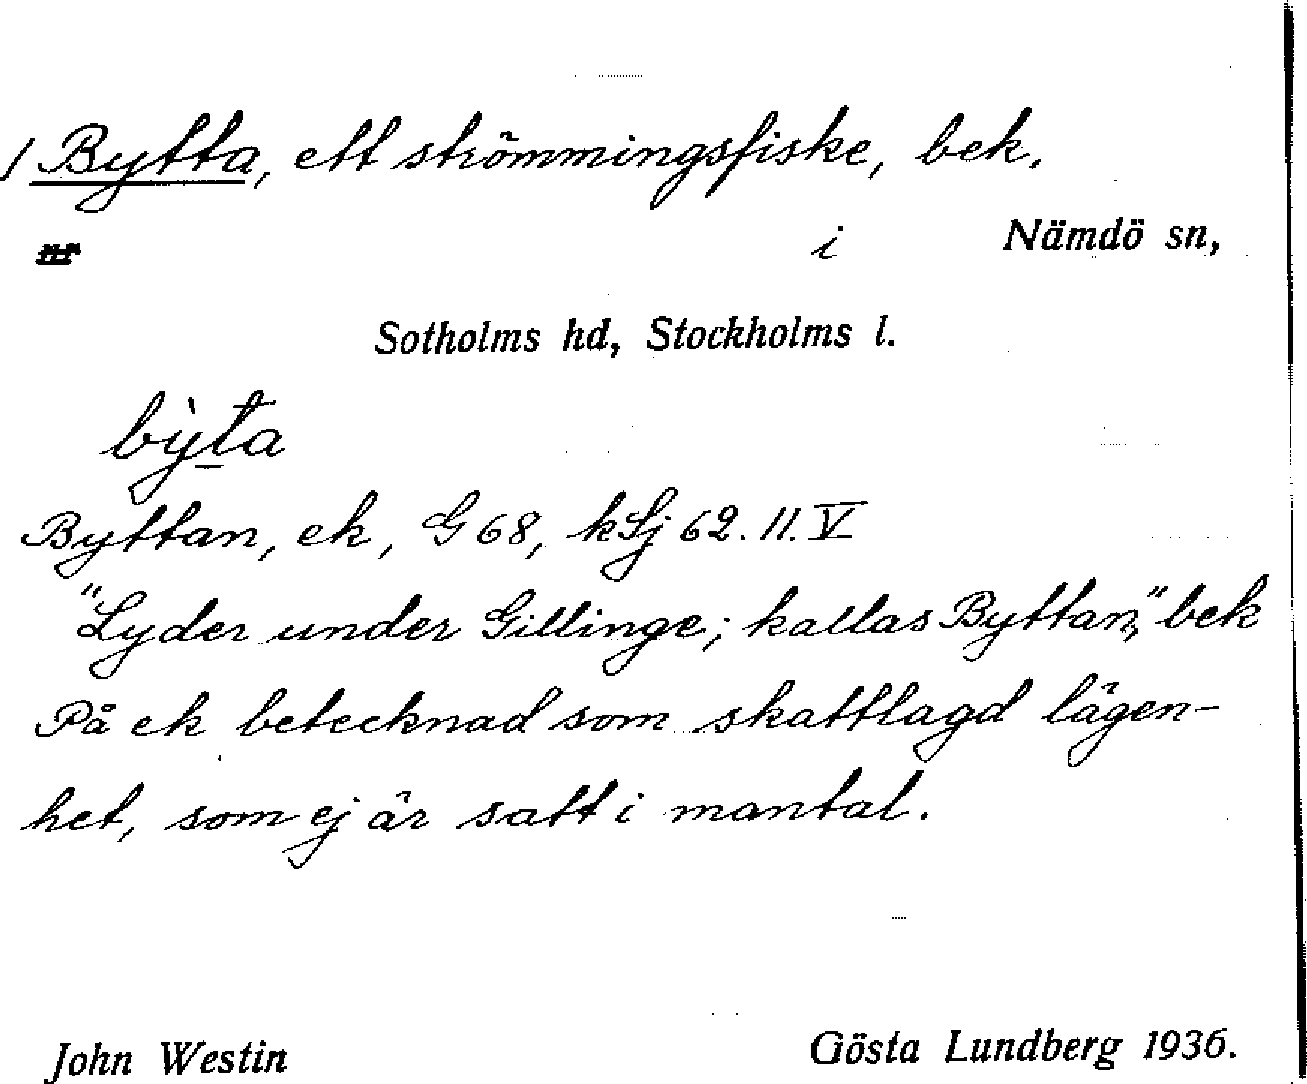 / Bytta, ett strömmingsfiske, bek.
nr i Nämdö sn,
Sotholms hd, Stockholms l.
bỳta
Byttan, ek, G 68, kSj 62. 11. V
"Lyder under Gillinge; kallas Byttan," bek
På ek betecknad som skattlagd lägen-
het, som ej är satt i mantal.
John Westin Gösta Lundberg 1936.